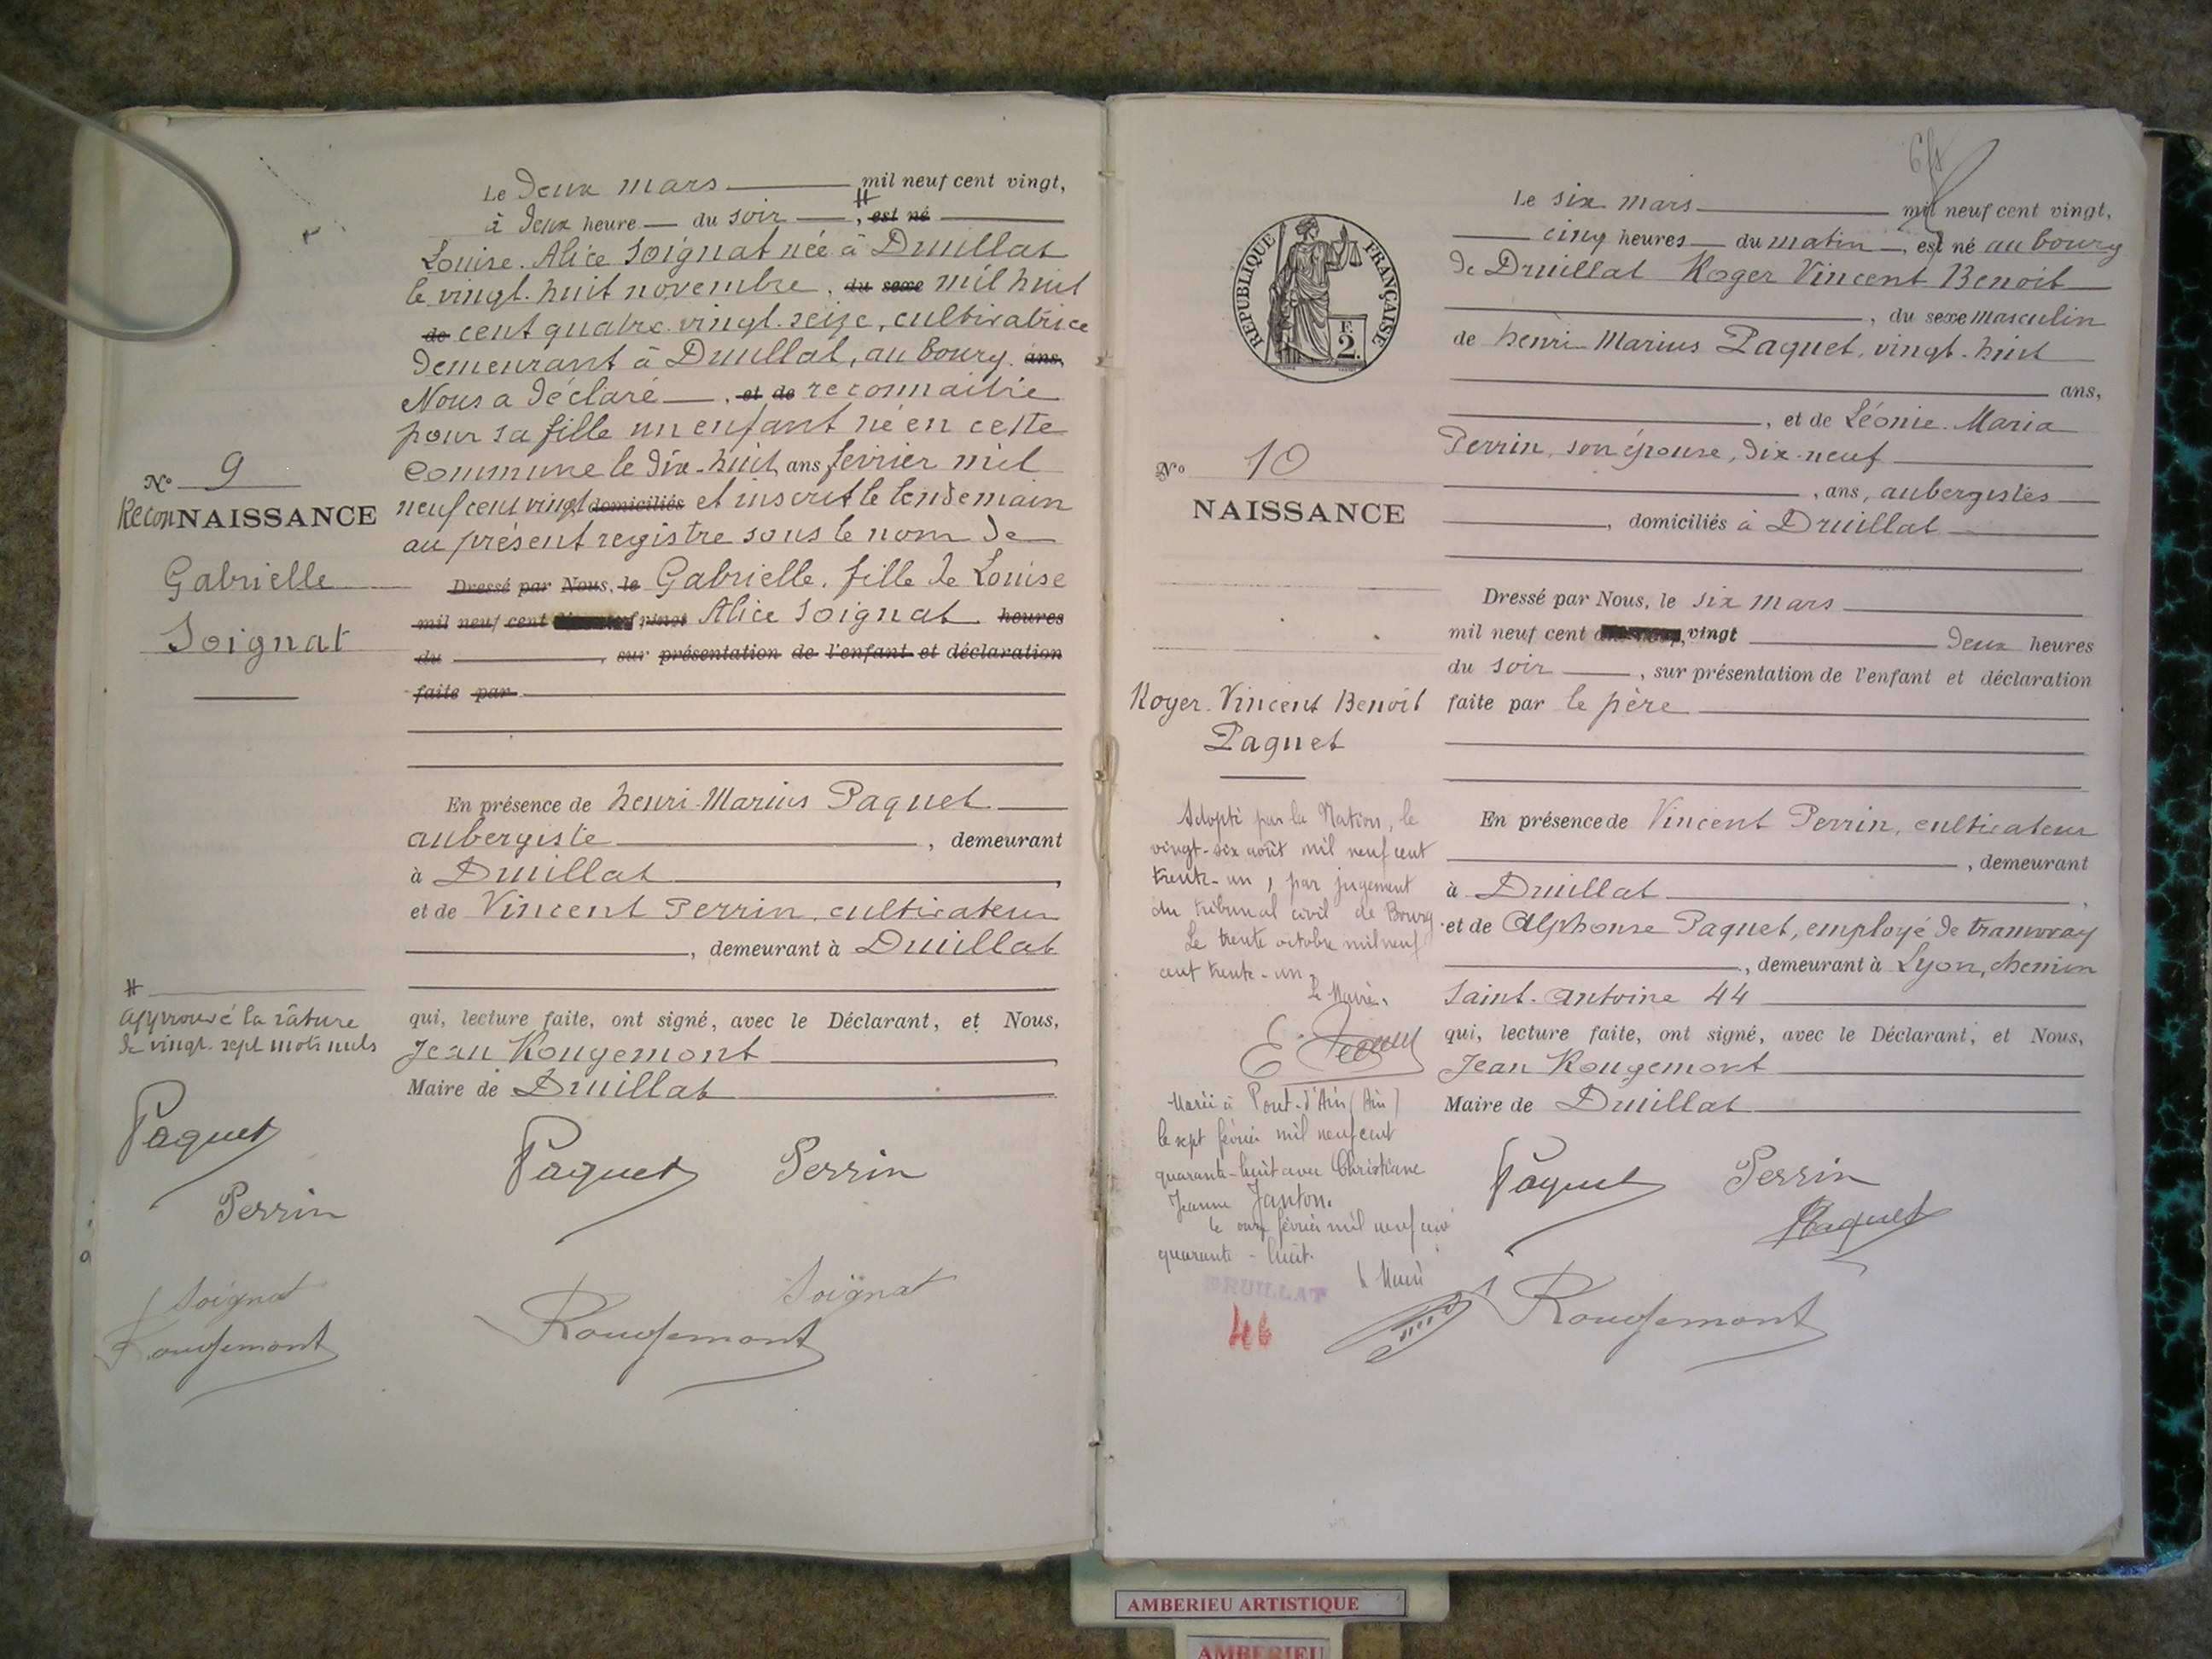 Le Deux mars mil neuf cent vingt,
à Deux heure du soir #, est né
Louise Alice Soignat née à Druillat
le vingt-huit novembre, du sexe mil huit
de cent quatre-vingt-seize, cultivatrice
demeurant à Druillat, au bourg ans,
Nous a déclaré, et de reconnaitre
pour sa fille un enfant né en cette
Commune le dix-huit ans février mil
neuf cent vingt domiciliés et inscrit le lendemain
au présent registre sous le nom de
Dressé par Nous, le Gabrielle, fille de Louise
mil neuf cent vingt Alice Soignat heures
du, sur présentation de l'enfant et déclaration
faite par
No 9
ReconNAISSANCE
Gabrielle
Soignat
En présence de henri-Marius Paquet
aubergiste, demeurant
à Druillat,
et de Vincent Perrin, cultivateur
, demeurant à Druillat
qui, lecture faite, ont signé, avec le Déclarant, et Nous,
Jean Rougemont,
Maire de Druillat
#
approuvé la râture
de vingt-sept mots nuls
Paquet
Perrin
Soignat
Rougemont
Paquet Perrin
Soignat
Rougemont
RÉPUBLIQUE FRANÇAISE
F.
2.
Le six mars mil neuf cent vingt,
cinq heures du matin, est né au bourg
de Druillat Roger Vincent Benoit
, du sexe masculin
de henri-Marius Paquet, vingt-huit
ans,
, et de Léonie-Maria
Perrin, son épouse, dix-neuf
, ans, aubergistes
, domiciliés à Druillat
No 10
NAISSANCE
Roger-Vincent Benoit
Paquet
Dressé par Nous, le six mars
mil neuf cent vingt Deux heures
du soir, sur présentation de l'enfant et déclaration
faite par le père
En présence de Vincent Perrin, cultivateur
, demeurant
à Druillat,
et de Alphonse Paquet, employé de tramway
, demeurant à Lyon, chemin
Saint-Antoine 44
qui, lecture faite, ont signé, avec le Déclarant, et Nous,
Jean Rougemont
Maire de Druillat
Adopté par la Nation, le
vingt-six août mil neuf cent
trente-un, par jugement
du tribunal civil de Bourg
Le trente octobre mil neuf
cent trente-un.
Le Maire,
Marié à Pont-d'Ain (Ain)
le sept février mil neuf cent
quarante-huit avec Christiane
Jeanne Janton.
le onze février mil neuf cent
quarante-huit.
le Maire
DRUILLAT
46
Paquet Perrin
Paquet
Rougemont
AMBERIEU ARTISTIQUE
AMBERIEU